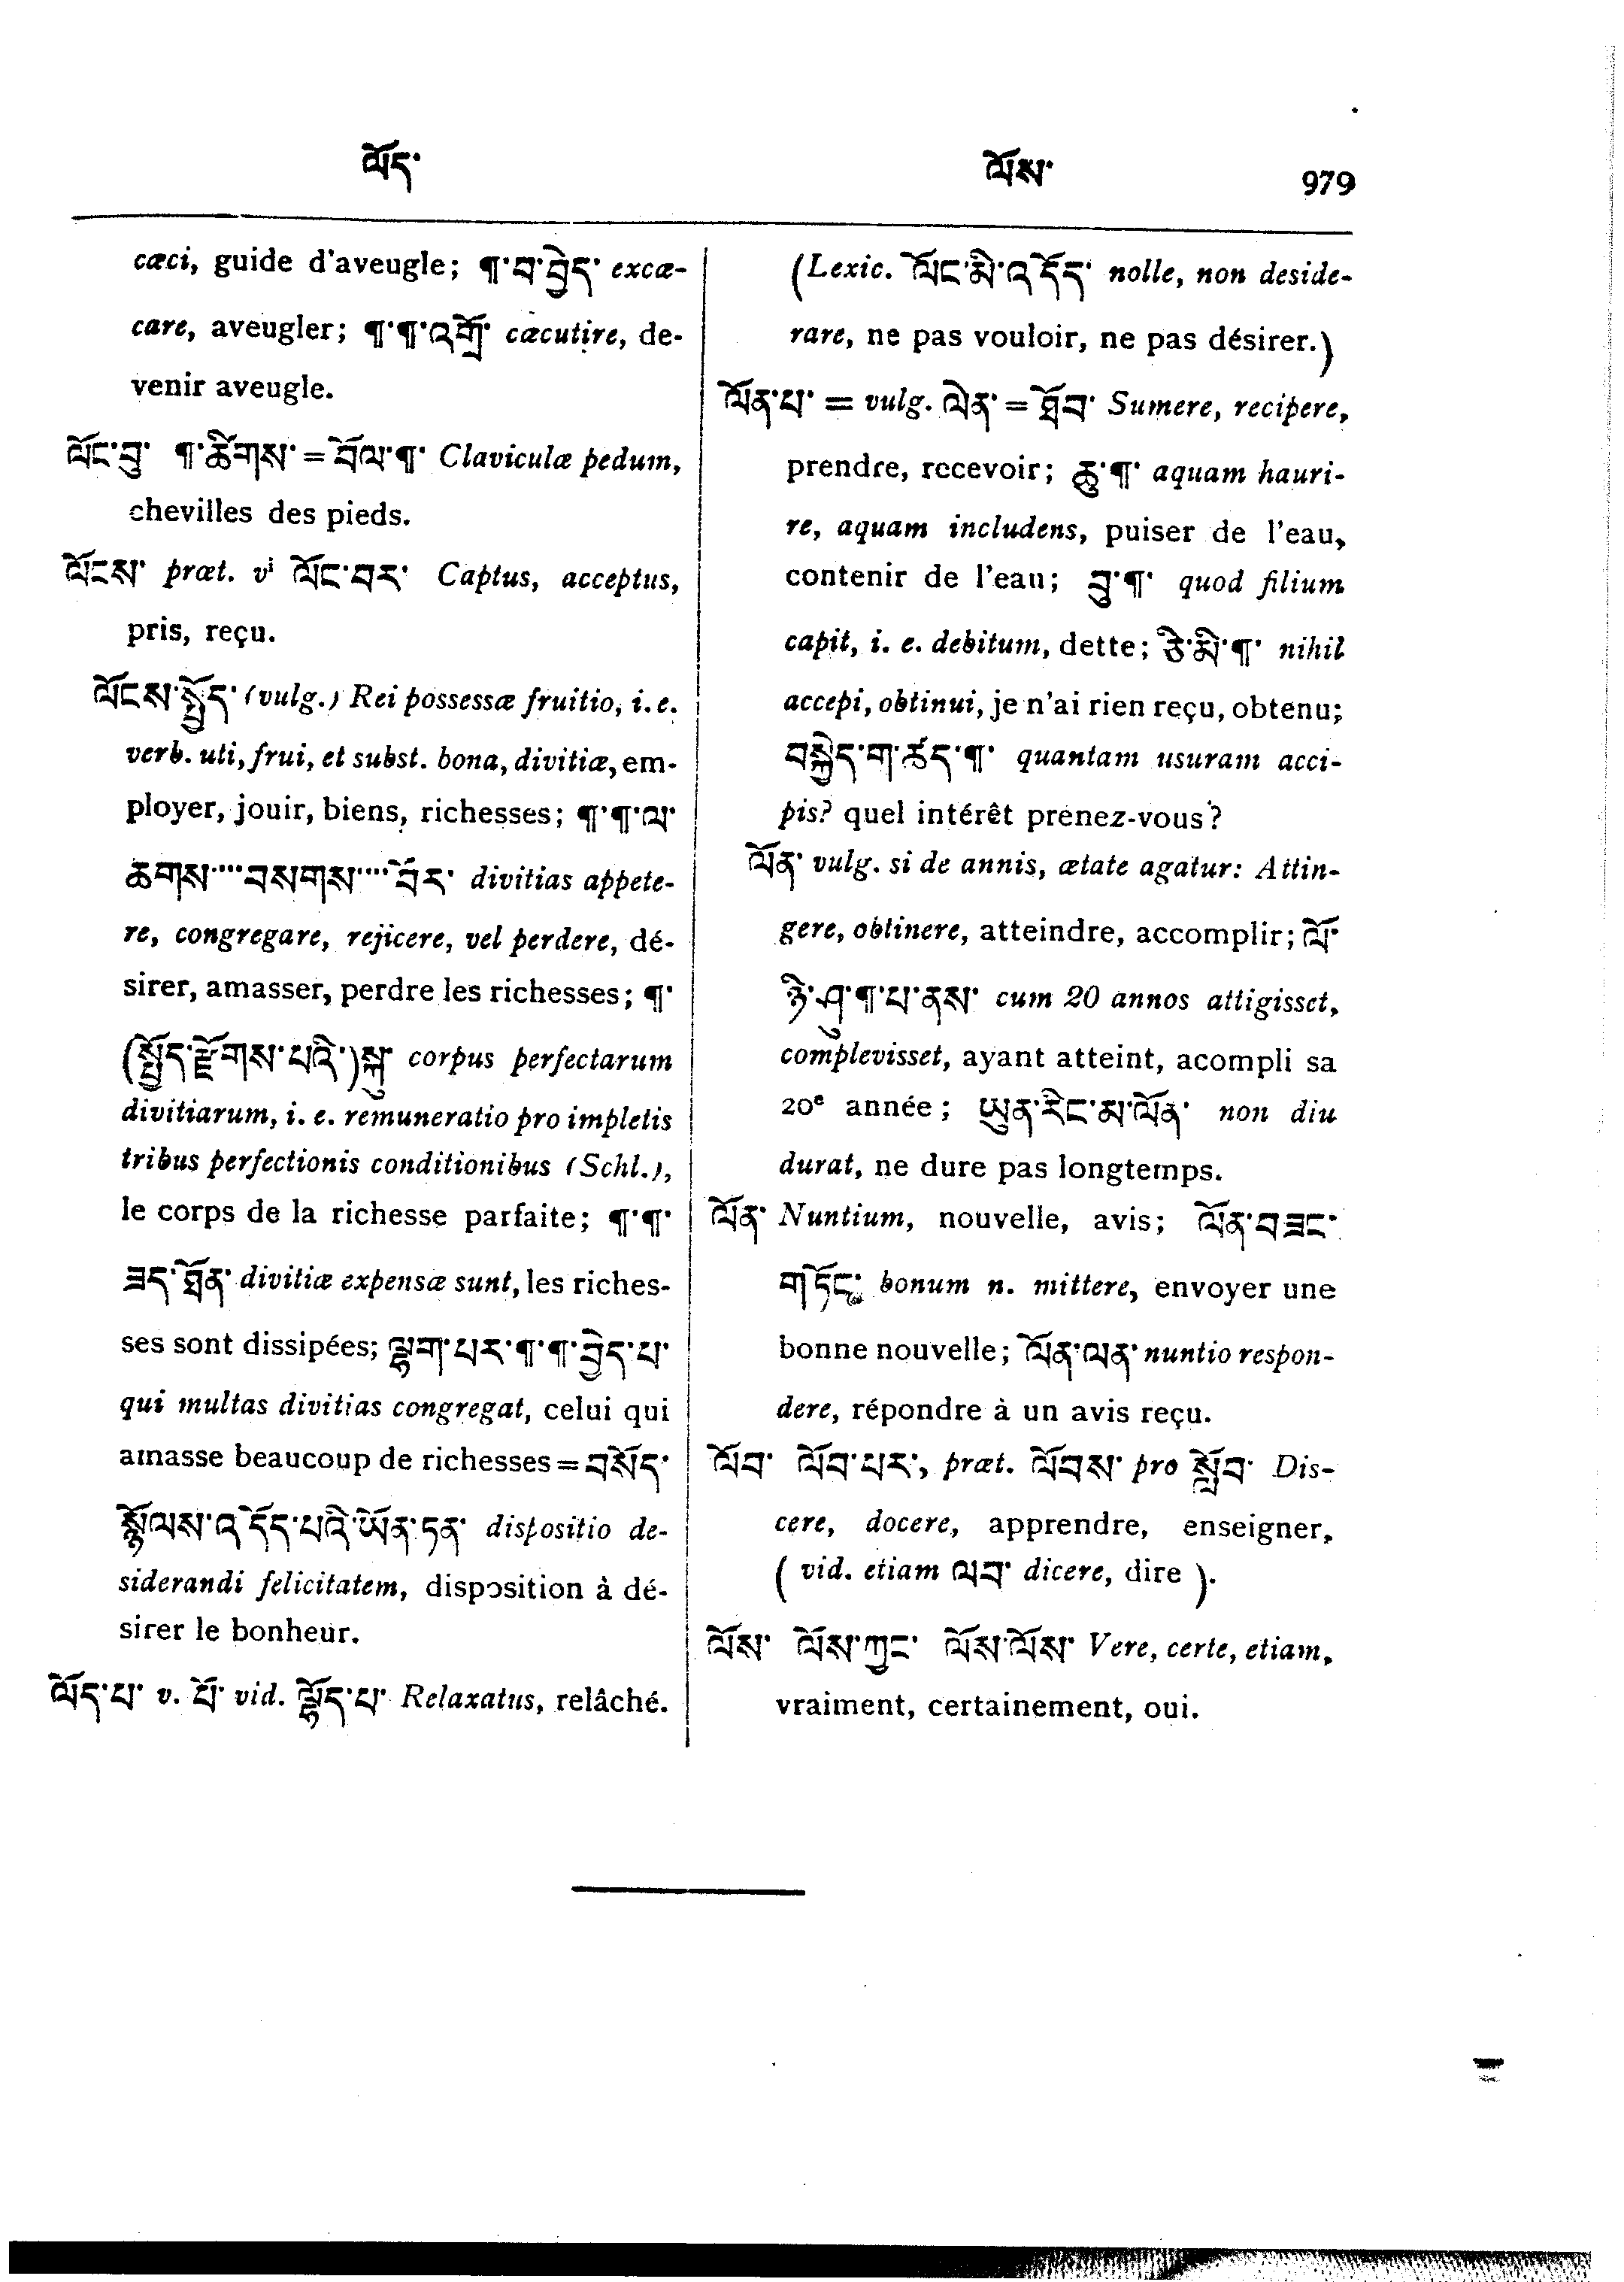 ལོད་
ལོས་
979
cæci, guide d'aveugle; ¶་བ་བྱེད་ excæ-
care, aveugler; ¶་¶་འགྲོ་ cæcutire, de-
venir aveugle.
ལོང་བུ་ ¶་ཚིགས་ = བོལ་¶་ Claviculæ pedum,
chevilles des pieds.
ལོངས་ præt. vi ལོང་བར་ Captus, acceptus,
pris, reçu.
ལོངས་སྤྱོད་ (vulg.) Rei possessæ fruitio, i. e.
verb. uti, frui, et subst. bona, divitiæ, em-
ployer, jouir, biens, richesses; ¶་¶་ལ་
ཆགས་....བསགས་....བོར་ divitias appete-
re, congregare, rejicere, vel perdere, dé-
sirer, amasser, perdre les richesses; ¶་
(སྤྱོད་རྫོགས་པའི་)སྐུ་ corpus perfectarum
divitiarum, i. e. remuneratio pro impletis
tribus perfectionis conditionibus (Schl.),
le corps de la richesse parfaite; ¶་¶་
ཟད་ཐོན་ divitiæ expensæ sunt, les riches-
ses sont dissipées; ལྷག་པར་¶་¶་བྱེད་པ་
qui multas divitias congregat, celui qui
amasse beaucoup de richesses = བསོད་
སྙོལས་འདོད་པའི་ཡོན་ཏན་ dispositio de-
siderandi felicitatem, disposition à dé-
sirer le bonheur.
ལོད་པ་ v. པོ་ vid. ལྷོད་པ་ Relaxatus, relâché.
(Lexic. ལོང་མི་འདོད་ nolle, non deside-
rare, ne pas vouloir, ne pas désirer.)
ལོན་པ་ = vulg. ལེན་ = ཐོབ་ Sumere, recipere,
prendre, recevoir; ཆུ་¶་ aquam hauri-
re, aquam includens, puiser de l'eau,
contenir de l'eau; བུ་¶་ quod filium
capit, i. e. debitum, dette; ཅེ་མི་¶་ nihil
accepi, obtinui, je n'ai rien reçu, obtenu;
བསྐྱེད་ག་ཚད་¶་ quantam usuram acci-
pis? quel intérêt prenez-vous?
ལོན་ vulg. si de annis, ætate agatur: Attin-
gere, obtinere, atteindre, accomplir; ལོ་
ཉི་ཤུ་¶་པ་ནས་ cum 20 annos attigisset,
complevisset, ayant atteint, acompli sa
20e année; ཡུན་རིང་མ་ལོན་ non diu
durat, ne dure pas longtemps.
ལོན་ Nuntium, nouvelle, avis; ལོན་བཟང་
གཏོང་ bonum n. mittere, envoyer une
bonne nouvelle; ལོན་ལན་ nuntio respon-
dere, répondre à un avis reçu.
ལོབ་ ལོབ་པར་, præt. ལོབས་ pro སློབ་ Dis-
cere, docere, apprendre, enseigner,
( vid. etiam ལབ་ dicere, dire ).
ལོས་ ལོས་ཀྱང་ ལོས་ལོས་ Vere, certe, etiam,
vraiment, certainement, oui.